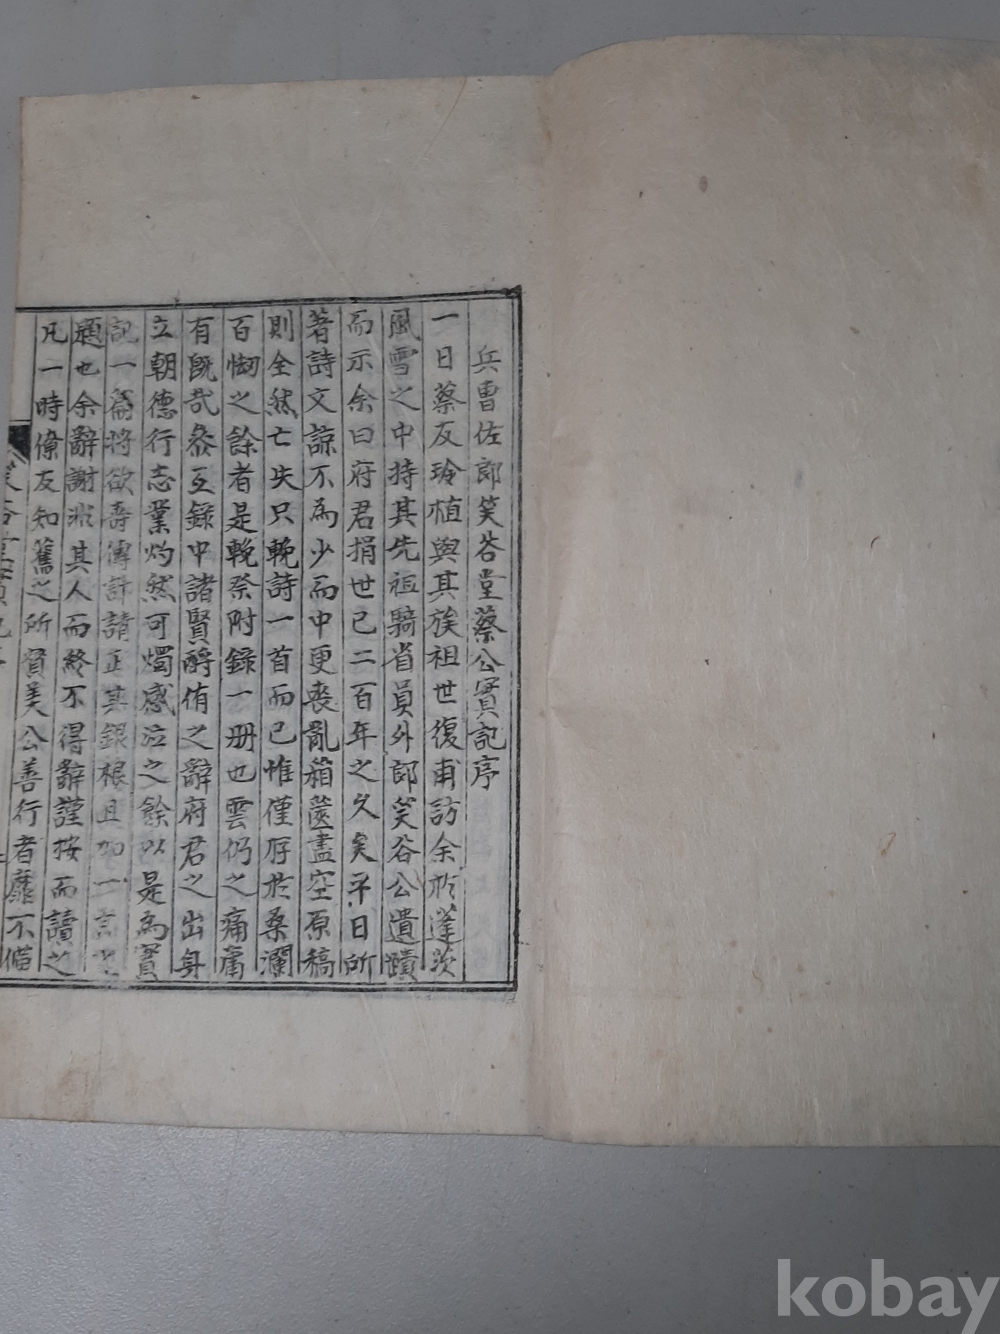 兵曹佐郎笑谷堂蔡公實記序
一日蔡友玲植與其族祖世復甫訪余於蓬茨
風雪之中持其先祖騎省員外郎笑谷公遺蹟
而示余曰府君捐世已二百年之久矣平日所
著詩文諒不為少而中更喪亂箱篋盡空原稿
則全然亡失只輓詩一首而已惟僅存於桑瀾
百㤼之餘者是輓祭附錄一册也雲仍之痛庸
有旣哉叅互錄中諸賢酹侑之辭府君之出身
立朝德行志業灼然可燭感泣之餘以是為實
記一篇將欲壽傳計請正其銀根且加一言
題也余辭謝非其人而終不得辭謹按而讀之
凡一時僚友知舊之所賢美公善行者靡不備
kobay